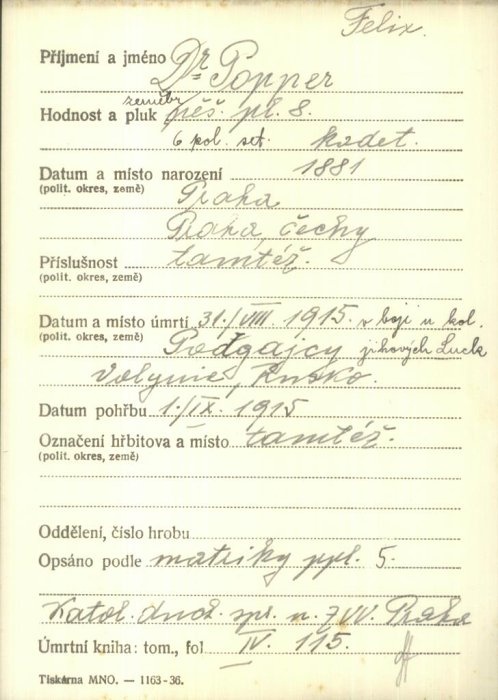 Felix.
Příjmení a jméno Dr Popper
zeměbr.
Hodnost a pluk pěš. pl. 8.
6 pol. set. kadet.
Datum a místo narození 1881
(polit. okres, země) Praha
Praha, Čechy
Příslušnost tamtéž.
(polit. okres, země)
Datum a místo úmrtí 31./VIII. 1915. v boji u kol.
(polit. okres, země) Podgajcy jihových. Luck
Volynie, Rusko.
Datum pohřbu 1./IX. 1915
Označení hřbitova a místo tamtéž.
(polit. okres, země)
Oddělení, číslo hrobu
Opsáno podle matriky ppl. 5.
Katol. duch. spr. u. ZVV. Praha
Úmrtní kniha: tom., fol IV. 115.
Tiskárna MNO. — 1163-36.